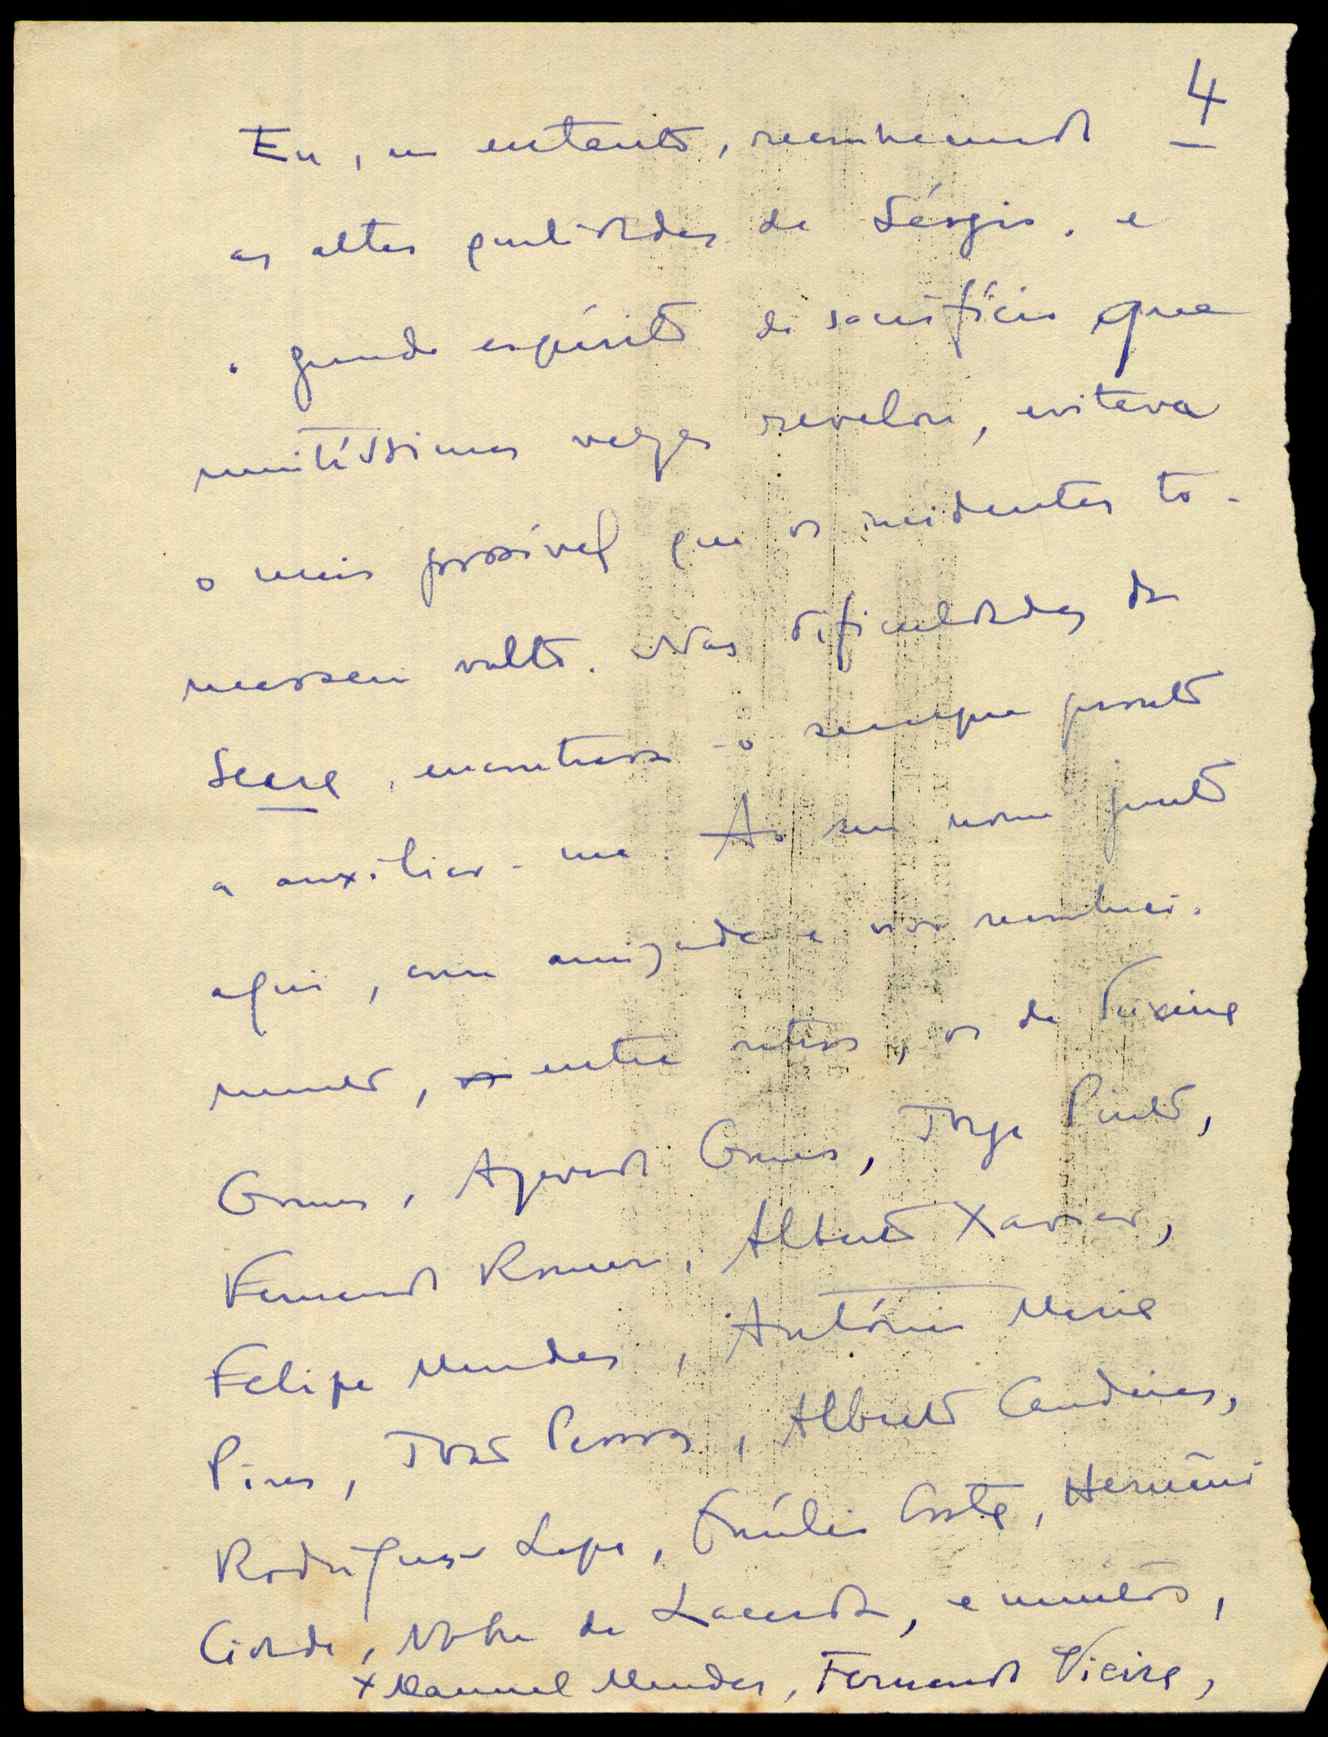 4
Eu, no entanto, reconhecendo
as altas qualidades de Sérgio, e
o grande espírito de sacrifício que
muitíssimas vezes revelou, evitava
o mais possível que os incidentes to-
massem vulto. Nas dificuldades da
Seara, encontrava-o sempre pronto
a auxiliar-me. Ao seu nome junto
aqui, com amizade e vivo reconheci-
mento, os entre outros, os de Teixeira
Gomes, Azevedo Gomes, Jorge Pinto,
Fernando Romero, Alberto Xavier,
Felipe Mendes, António Maria
Pires, João Pessoa, Alberto Candeias,
Rodrigues Lapa, Emílio Costa, Hernâni
Cidade, Nobre de Lacerda, e muitos,
x Manuel Mendes, Fernando Vieira,